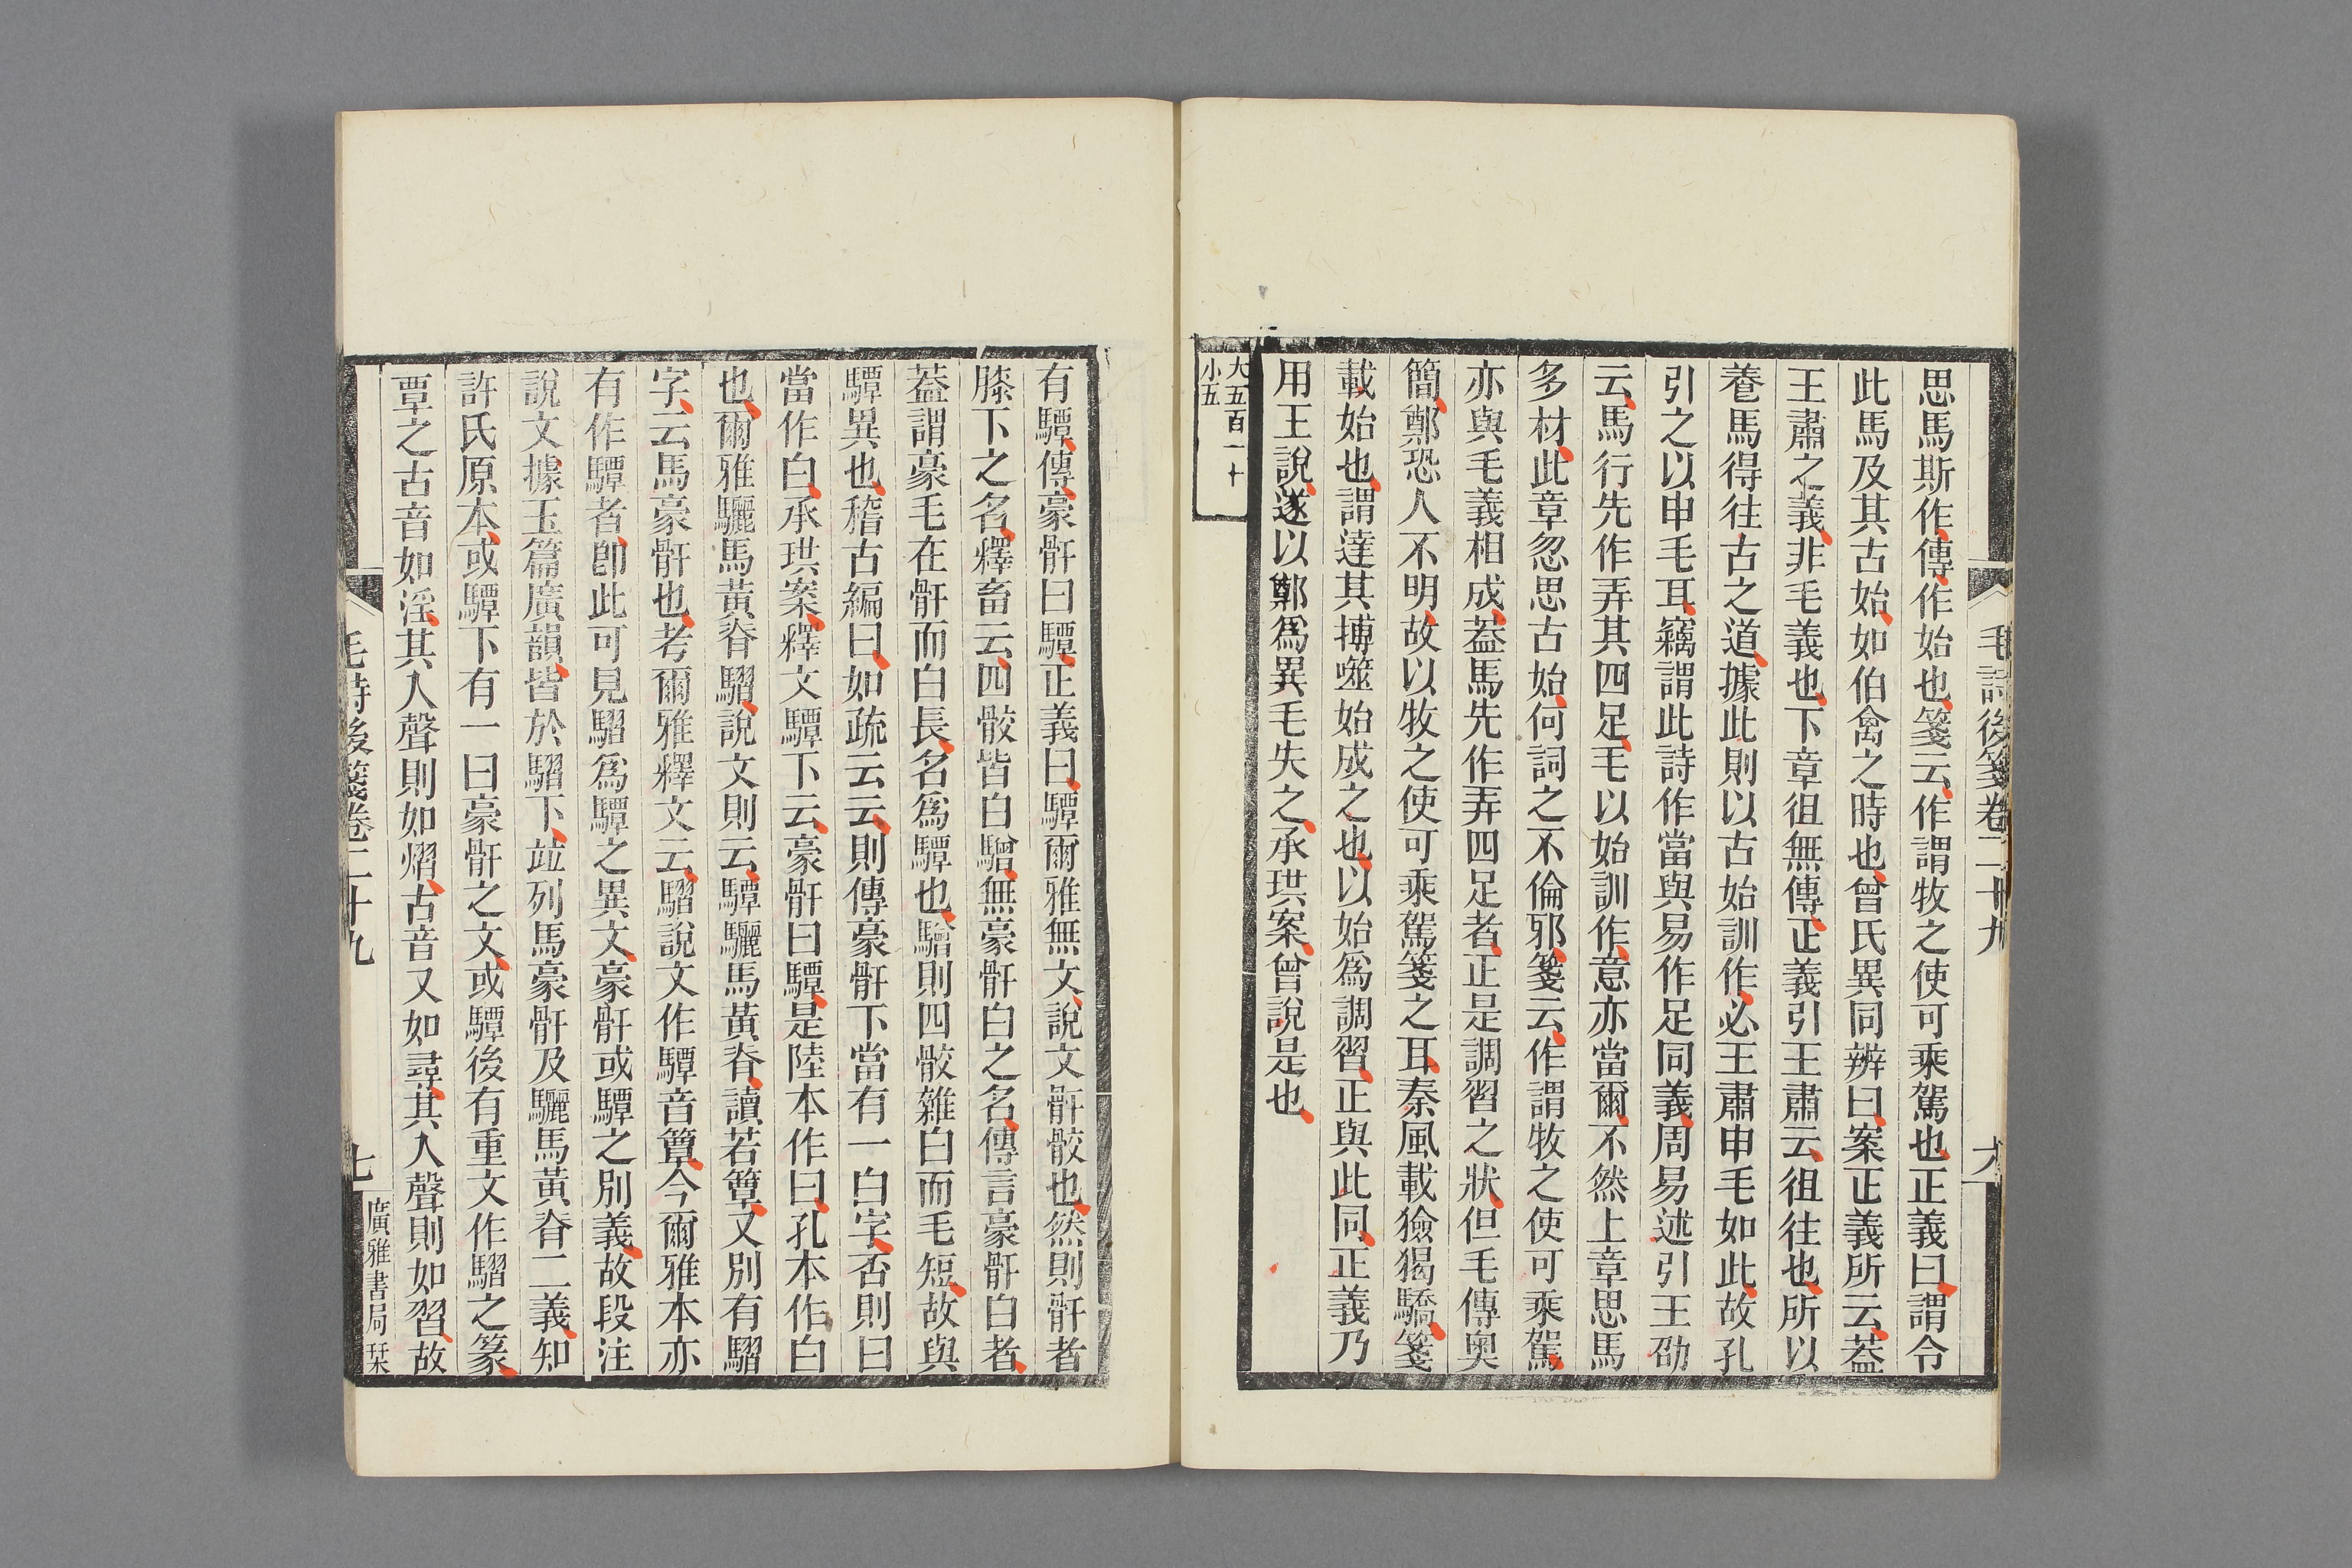 毛詩後箋卷二十九
思馬斯作傳作始也箋云作謂牧之使可乘駕也正義曰謂令
此馬及其古始如伯禽之時也曾氏異同辨曰案正義所云葢
王肅之義非毛義也下章徂無傳正義引王肅云徂往也所以
養馬得往古之道據此則以古始訓作必王肅申毛如此故孔
引之以申毛耳竊謂此詩作當與易作足同義周易述引王劭
云馬行先作弄其四足毛以始訓作意亦當爾不然上章思馬
多材此章忽思古始何詞之不倫邪箋云作謂牧之使可乘駕
亦與毛義相成葢馬先作弄四足者正是調習之狀但毛傳奧
簡鄭恐人不明故以牧之使可乘駕箋之耳秦風載獫猲驕箋
載始也謂達其搏噬始成之也以始爲調習正與此同正義乃
用王說遂以鄭爲異毛失之承珙案曾說是也
大五百一十
小五
有驔傳豪骭曰驔正義曰驔爾雅無文說文骭骹也然則骭者
膝下之名釋畜云四骹皆白驓無豪骭白之名傳言豪骭白者
葢謂豪毛在骭而白長名爲驔也驓則四骹雜白而毛短故與
驔異也稽古編曰如疏云云則傳豪骭下當有一白字否則曰
當作白承珙案釋文驔下云豪骭曰驔是陸本作曰孔本作白
也爾雅驪馬黃脊騽說文則云驔驪馬黃脊讀若簟又別有騽
字云馬豪骭也考爾雅釋文云騽說文作驔音簟今爾雅本亦
有作驔者卽此可見騽爲驔之異文豪骭或驔之別義故段注
說文據玉篇廣韻皆於騽下竝列馬豪骭及驪馬黃脊二義知
許氏原本或驔下有一曰豪骭之文或驔後有重文作騽之篆
覃之古音如淫其入聲則如熠古音又如尋其入聲則如習故
毛詩後箋卷二十九
七
廣雅書局栞